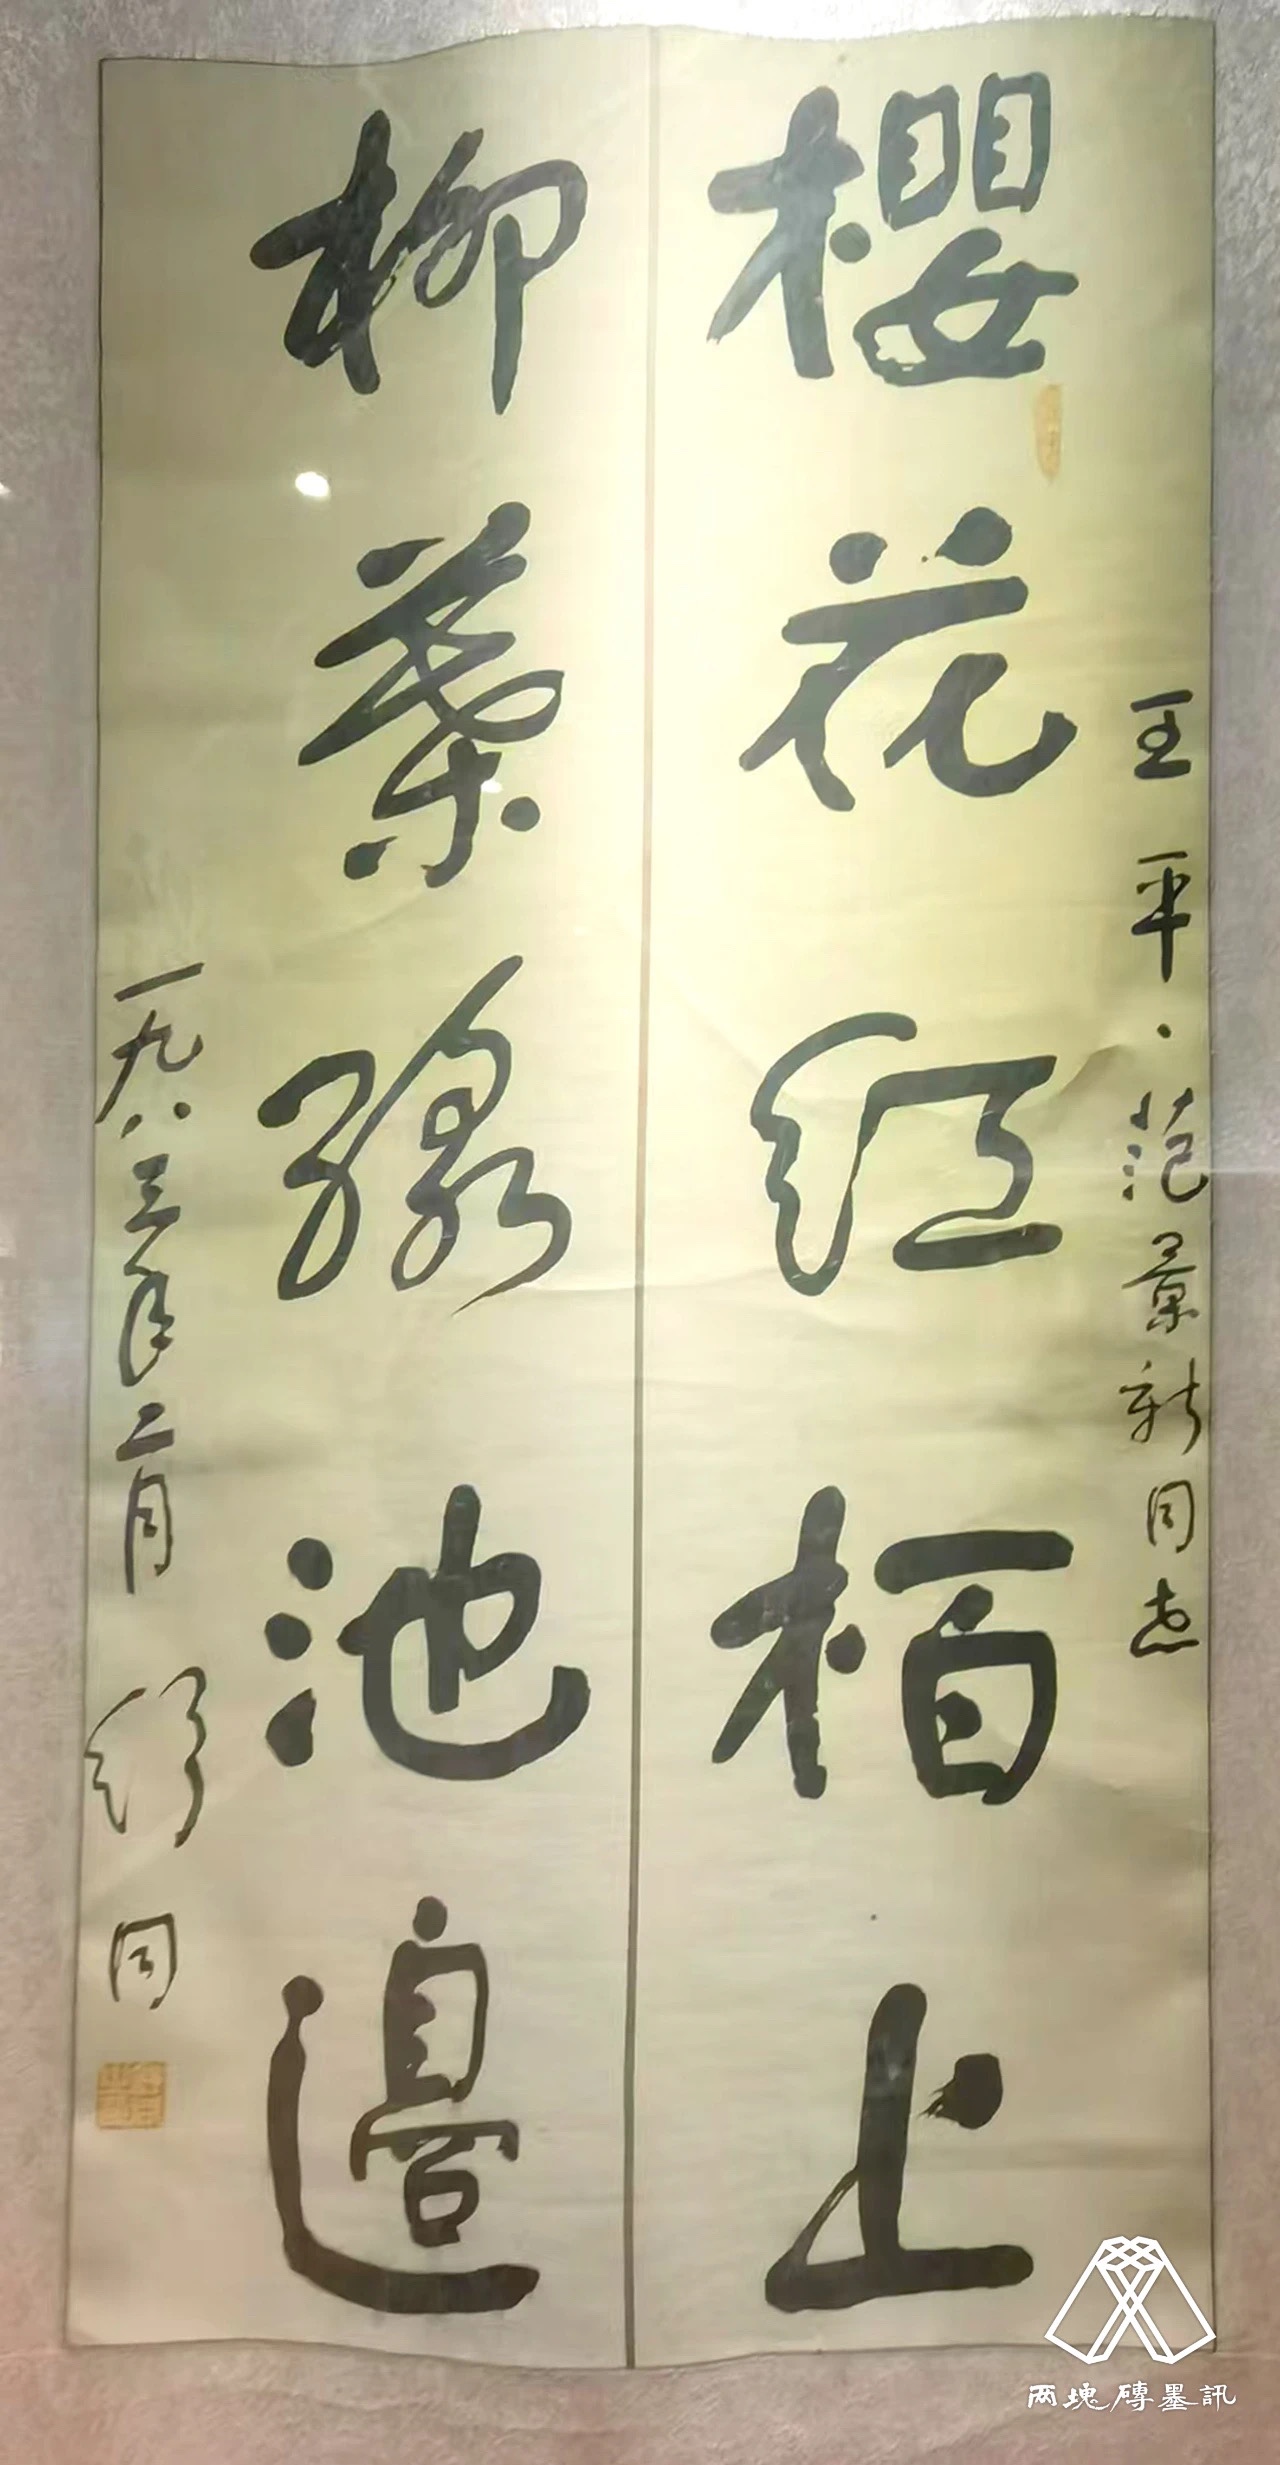 王平·范景新同志
櫻花紅栢上
柳葉綠池邊
一九八三年二月 舒同
两塊磚墨訊